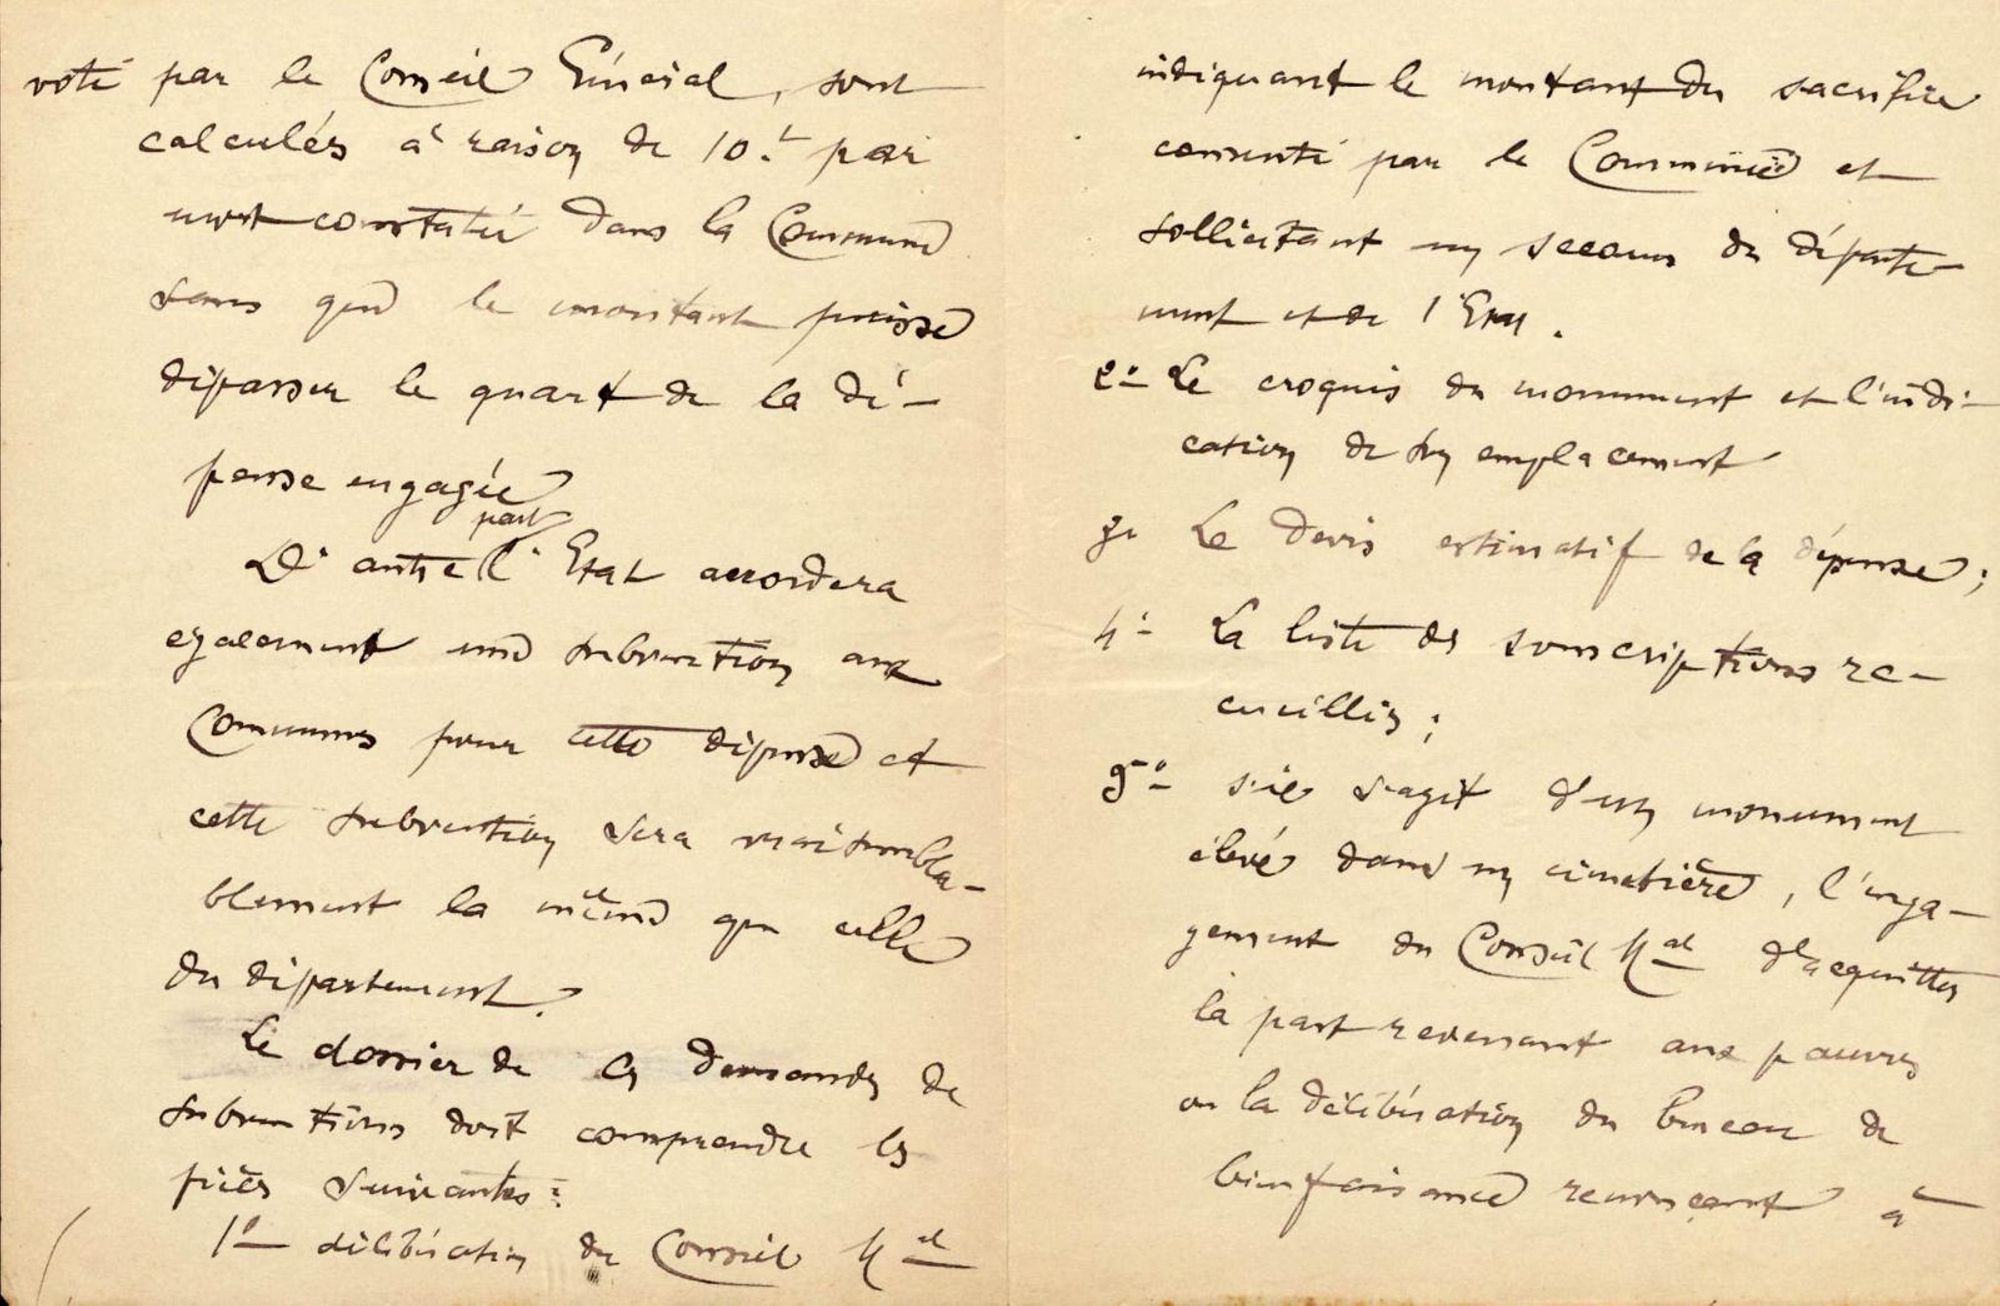 voté par le Conseil Général, sont
calculés à raison de 10.f par
mort constaté dans la Commune
sans que le montant puisse
dépasser le quart de la dé-
pense engagée
part
D'autre l'Etat accordera
egalement une subvention aux
Communes pour cette dépense et
cette subvention sera vraisembla-
blement la même que celle
du département.
Le dossier de ces demandes de
subventions doit comprendre les
pièces suivantes :
1° délibération du Conseil Mal
indiquant le montant du sacrifice
consenti par la Commune et
sollicitant un secours du départe-
ment et de l'Etat.
2° Le croquis du monument et l'indi-
cation de son emplacement
3° Le devis estimatif de la dépense ;
4° La liste des souscriptions re-
cueillies ;
5° s'il s'agit d'un monument
élevé dans un cimetière, l'enga-
gement du Conseil Mal d'acquitter
la part revenant aux pauvres
ou la délibération du bureau de
bienfaisance renonçant à